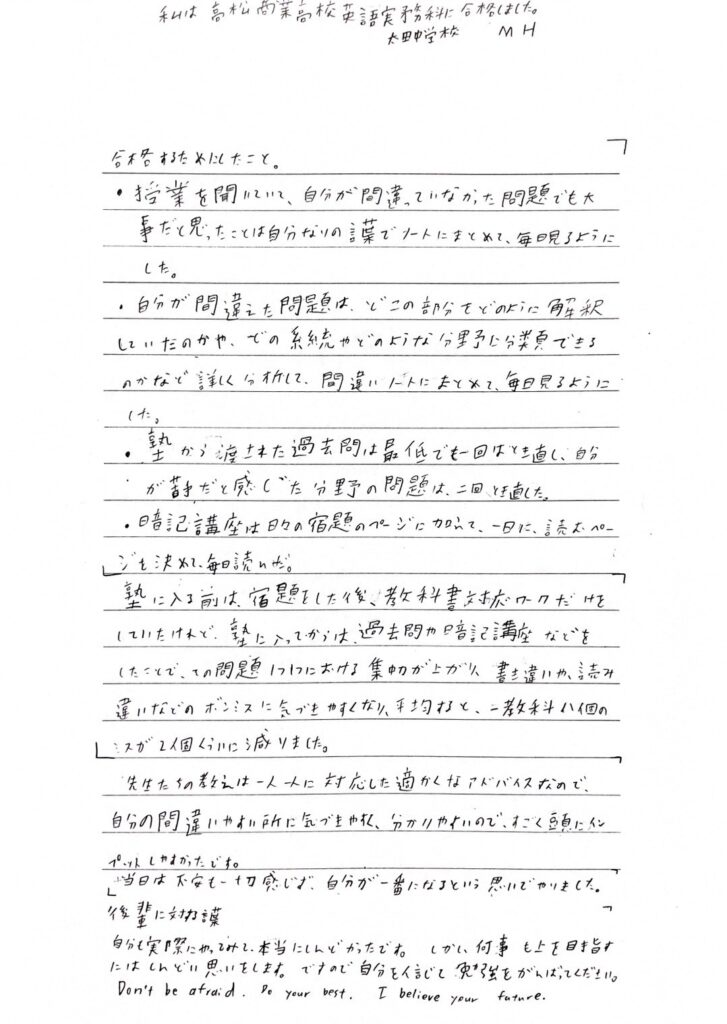 私は高松商業高校英語実務科に合格しました。
太田中学校 M H
合格するためにしたこと。
・授業を聞いていて、自分が間違っていなかった問題でも大
事だと思ったことは自分なりの言葉でノートにまとめて、毎日見るように
した。
・自分が間違えた問題は、どこの部分をどのように解釈
していたのかや、どの系統やどのような分野に分類できる
のかなど詳しく分析して、間違いノートにまとめて、毎日見るように
した。
・塾から渡された過去問は最低でも一回はとき直し、自分
が苦手だと感じた分野の問題は、二回とき直した。
・暗記講座は日々の宿題のページに加えて、一日に、読むペー
ジを決めて、毎日読んだ。
塾に入る前は、宿題をした後、教科書対応ワークだけを
していたけれど、塾に入ってからは、過去問や暗記講座などを
したことで、その問題1つ1つにおける集中力が上がり、書き違いや、読み
違いなどのボンミスに気づきやすくなり、平均すると、一教科八個の
ミスが2個くらいに減りました。
先生たちの教えは一人一人に対応した適かくなアドバイスなので、
自分の間違いやすい所に気づきやすく、分かりやすいので、すごく頭にイン
プットしやすかったです。
当日は不安も一切感じず、自分が一番になるという思いでやりました。
後輩に対する言葉
自分も実際にやってみて、本当にしんどかったです。しかし、何事も上を目指す
にはしんどい思いをします。ですので自分を信じて勉強をがんばってください。
Don't be afraid. Do your best. I believe your future.